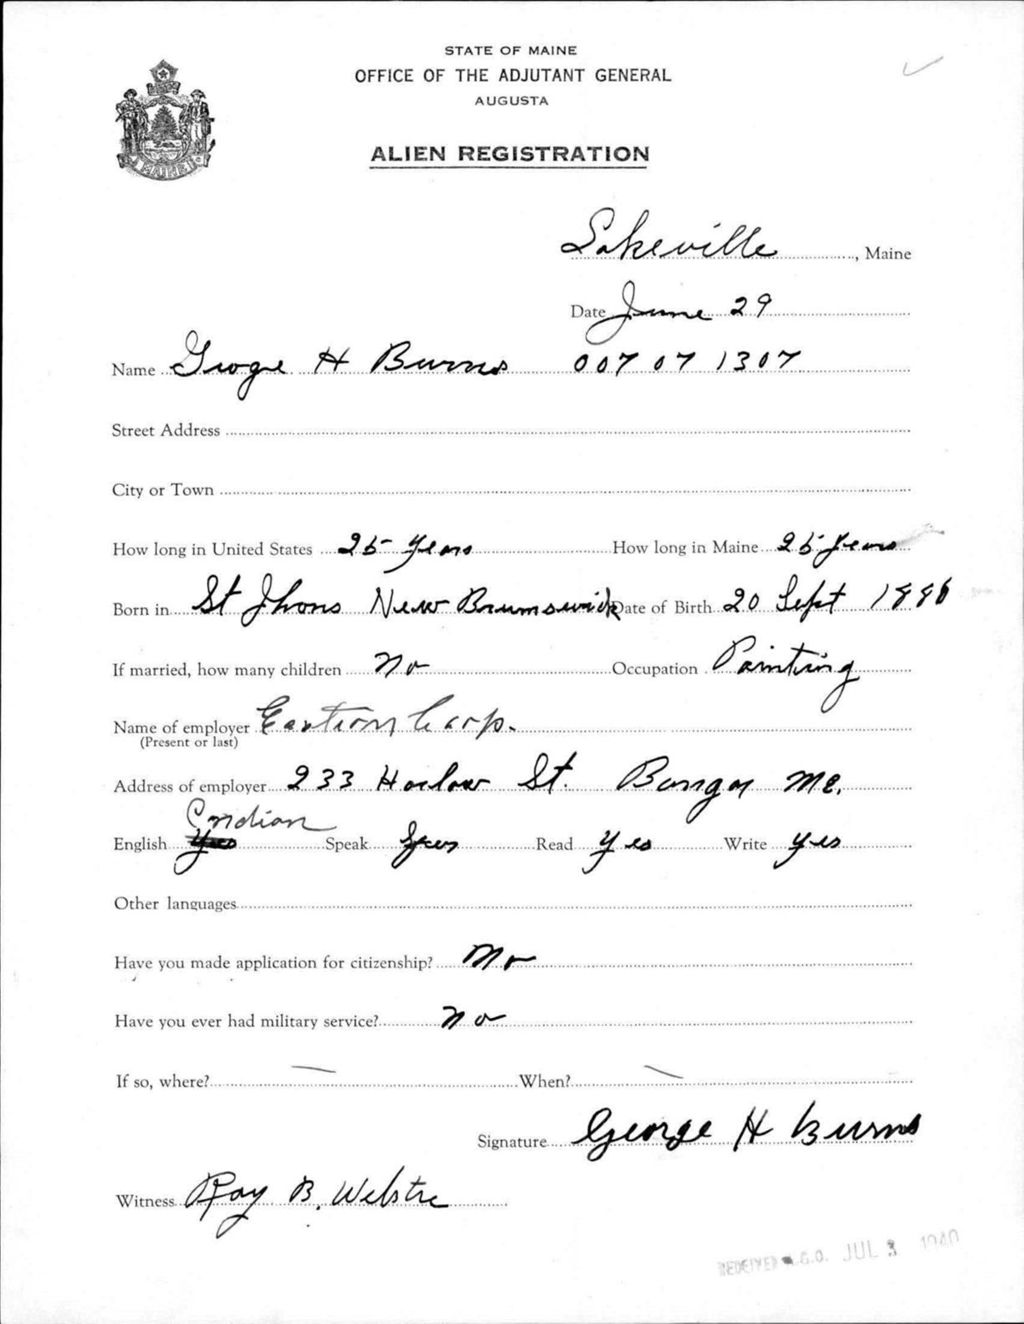 STATE OF MAINE
OFFICE OF THE ADJUTANT GENERAL
AUGUSTA
ALIEN REGISTRATION
MAINE
Lakeville, Maine
Date June 29
Name George H Burns 007 07 1307
Street Address
City or Town
How long in United States 25 years How long in Maine 25 years
Born in St Jhons New Brumswick Date of Birth 20 Sept 1886
If married, how many children No Occupation Painting
Name of employer Eastern Corp.
(Present or last)
Address of employer 233 Harlow St. Bangor Me.
Indian
English Yes Speak Yes Read Yes Write Yes
Other languages
Have you made application for citizenship? No
Have you ever had military service? No
If so, where? — When? —
Signature George H Burns
Witness Roy B. Webster
RECEIVED A.G.O. JUL 3 1940